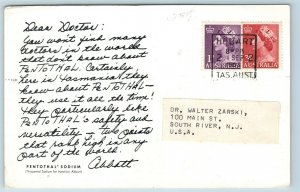 Dear Doctor:
You won't find many
doctors in the world
that don't know about
PENTOTHAL. Certainly,
here in Tasmania, they
know about PENTOTHAL—
they use it all the time!
They particularly like
PENTOTHAL's safety and
versatility — two points
that rank high in any
part of the world.
Abbott
PENTOTHAL® SODIUM
(Thiopental Sodium for Injection, Abbott)
HOBART
TAS. AUST
AUSTRALIA
DR. WALTER ZARSKI,
100 MAIN ST.
SOUTH RIVER, N.J.
U.S.A.